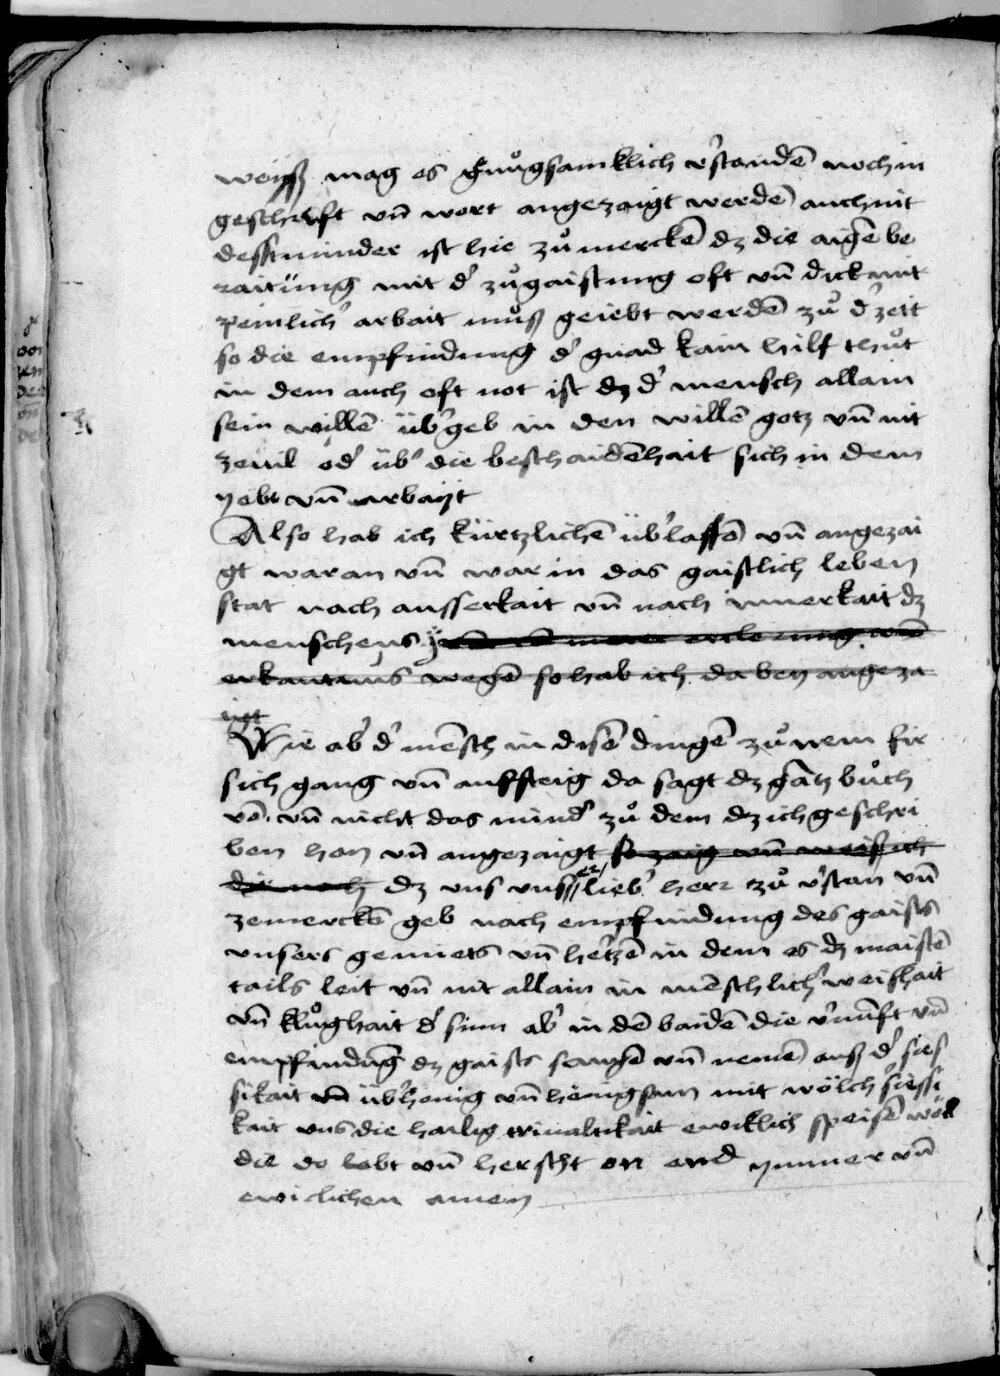 weiß mag es gnuͦgsamklich v̓standē noch in
geschrift vn̄ wort angezaigt werdē auch nit
desstminder ist hie zuͦ merckē dz die aigē be
raitung mit d̓ zuͦgaistung oft vn̄ dick mit
peinlich̓ arbait muͦß geiebt werdē zuͦ d̓ zeit
so die empfindung d̓ gnad kain hilf thuͦt
in dem auch oft not ist dz d̓ mensch allain
sein willē üb̓geb in den willē gotz vn̄ nit
zeuil od̓ üb̓ die beschaidēhait sich in dem
yebt vn̄ arbayt
Also hab ich kürtzlichē üb̓lassē vn̄ angezai
gt waran vn̄ war in das gaistlich leben
stat nach ausserkait vn̄ nach innerkait dz
menschens
erkantnus wegē so hab ich da bey angeza
igt
Wie ab̓ d̓ mēsch in disē dingē zuͦ nem fir
sich gang vn̄ aufsteig da sagt dz gātz buͦch
vō vn̄ nicht das mind̓ zuͦ dem dz ich geschri
ben han vn̄ angezaigt so zaig vn̄ weiß ich
die noch dz vns vnser lieb̓ herr zuͦ v̓stan vn̄
zemerckē geb nach empfindung des gaists
vnsers gemiets vn̄ hertzē in dem es dz maistē
tails leit vn̄ nit allain in mēschlich̓ weishait
vn̄ kluͦghait d̓ sinn ab̓ in dē baidē die v̓nunft vn̄
empfindūg dz gaists saugē vn̄ nemē auß d̓ sies
sikait vn̄ üb̓honig vn̄ hönigsam mit wölch̓ siessi
kait vns die hailig triualtikait ewiklich speisē wöll
die do lebt vn̄ herscht on end ymmer vn̄
ewiclichen amen